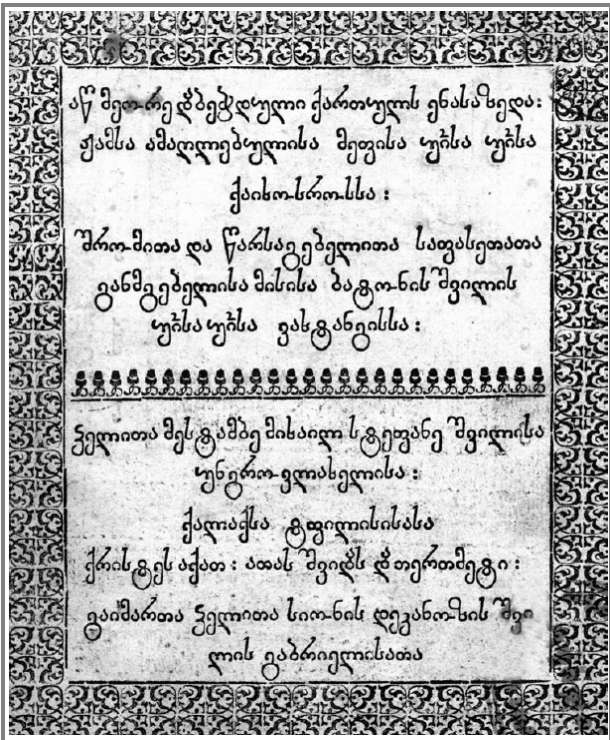 აწ მეორე დბეჭდული ქართულს ენასაზედა:
ჟამსა ამაღლებულისა მეფისა უსა უსა
ქაიხოსროსსა:
შრომითა და წარსაგებელითა საფასეთათა
განმგებელისა მისისა ბატონის შვილის
უსა უსა ვახტანგისსა:
ჴელითა მესტამბე მიხაილ სტეფანე შვილისა
უნგროვლახელისა:
ქალაქსა ტფილისისასა
ქრისტეს აქათ: ათას შვიდს და თერთმეტი:
გაიმართა ჴელითა სიონის დეკანოზის შვი
ლის გაბრიელისათა